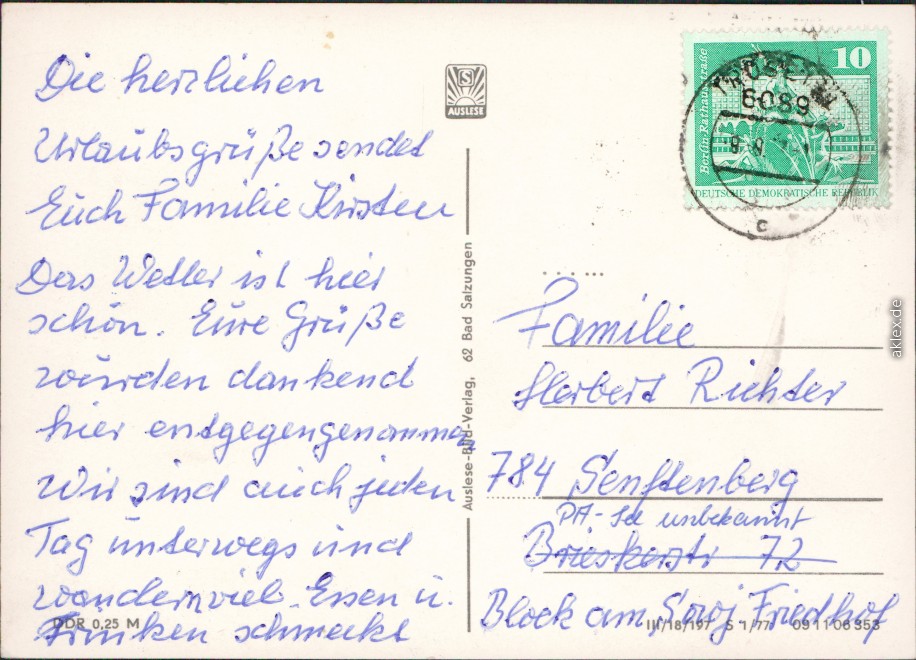 Die herzlichen
Urlaubsgrüße sendet
Euch Familie Kirsten
Das Wetter ist hier
schön. Eure Grüße
wurden dankend
hier entgegengenommen
Wir sind auch jeden
Tag unterwegs und
wandern viel. Essen u.
Trinken schmeckt
DDR 0,25 M
S
AUSLESE
Auslese-Bild-Verlag, 62 Bad Salzungen
10
Berlin-Rathausstraße
DEUTSCHE DEMOKRATISCHE REPUBLIK
6089
c
Familie
Herbert Richter
784 Senftenberg
unbekannt
Brieskerstr 72
Block am Sowj Friedhof
III/18/197 S 1/77 09 11 06 353
aklex.de